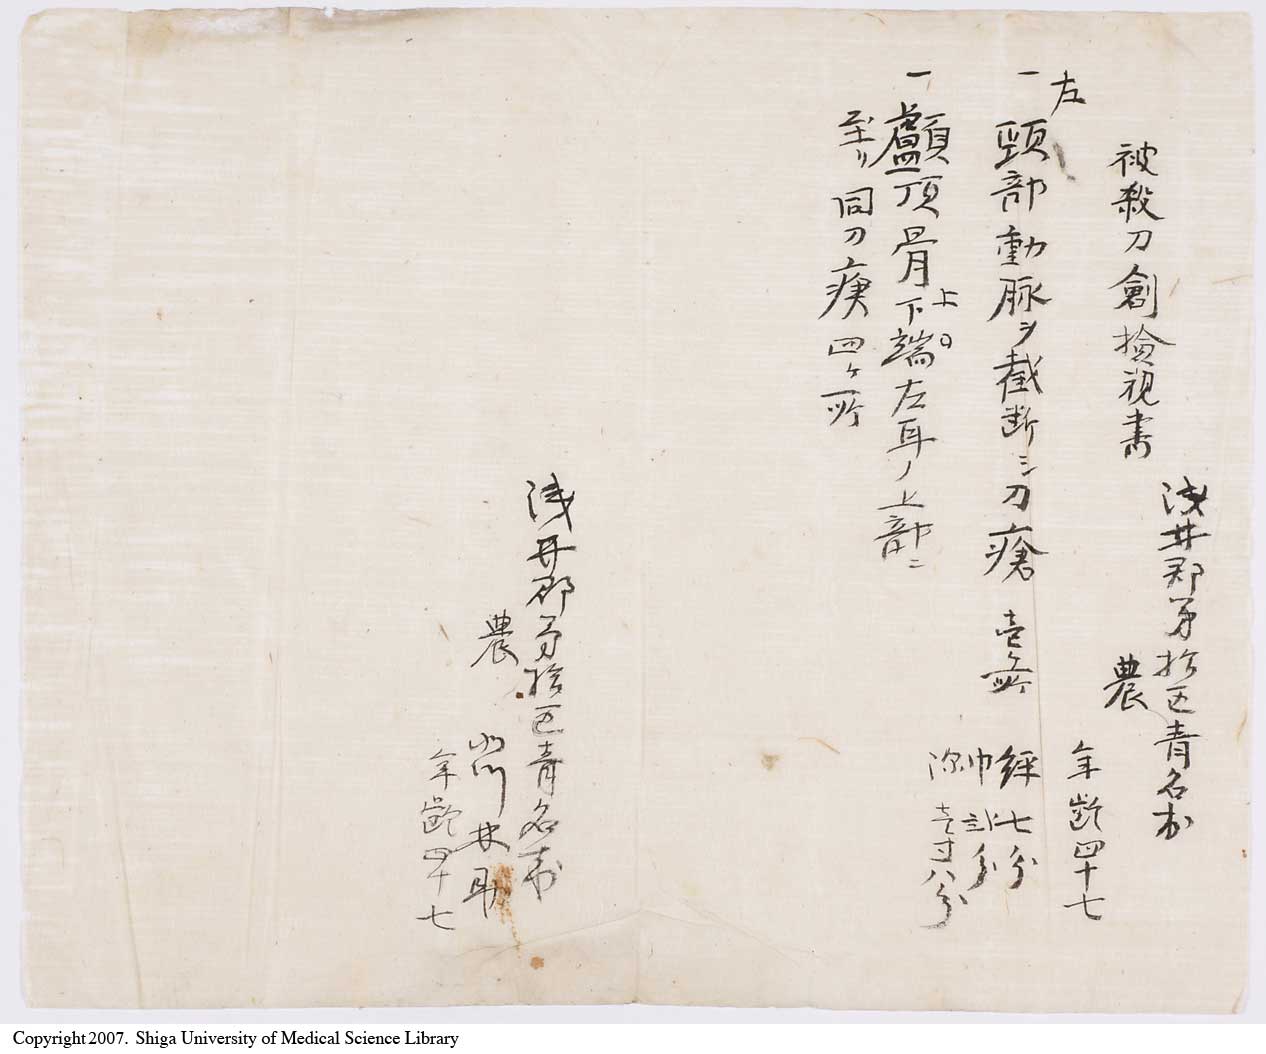 被殺刀創撿視書
浅井郡第拾区青名村
農
年齢四十七
一 左頸部動脉ヲ截断シ刀瘡壱ケ所
経七分
巾弐分
深壱寸八分
一 顱頂骨上下端左耳ノ上部ニ
至リ同刀痍四ケ所
浅井郡第拾区青名村
農
年齢四十七
Copyright 2007. Shiga University of Medical Science Library